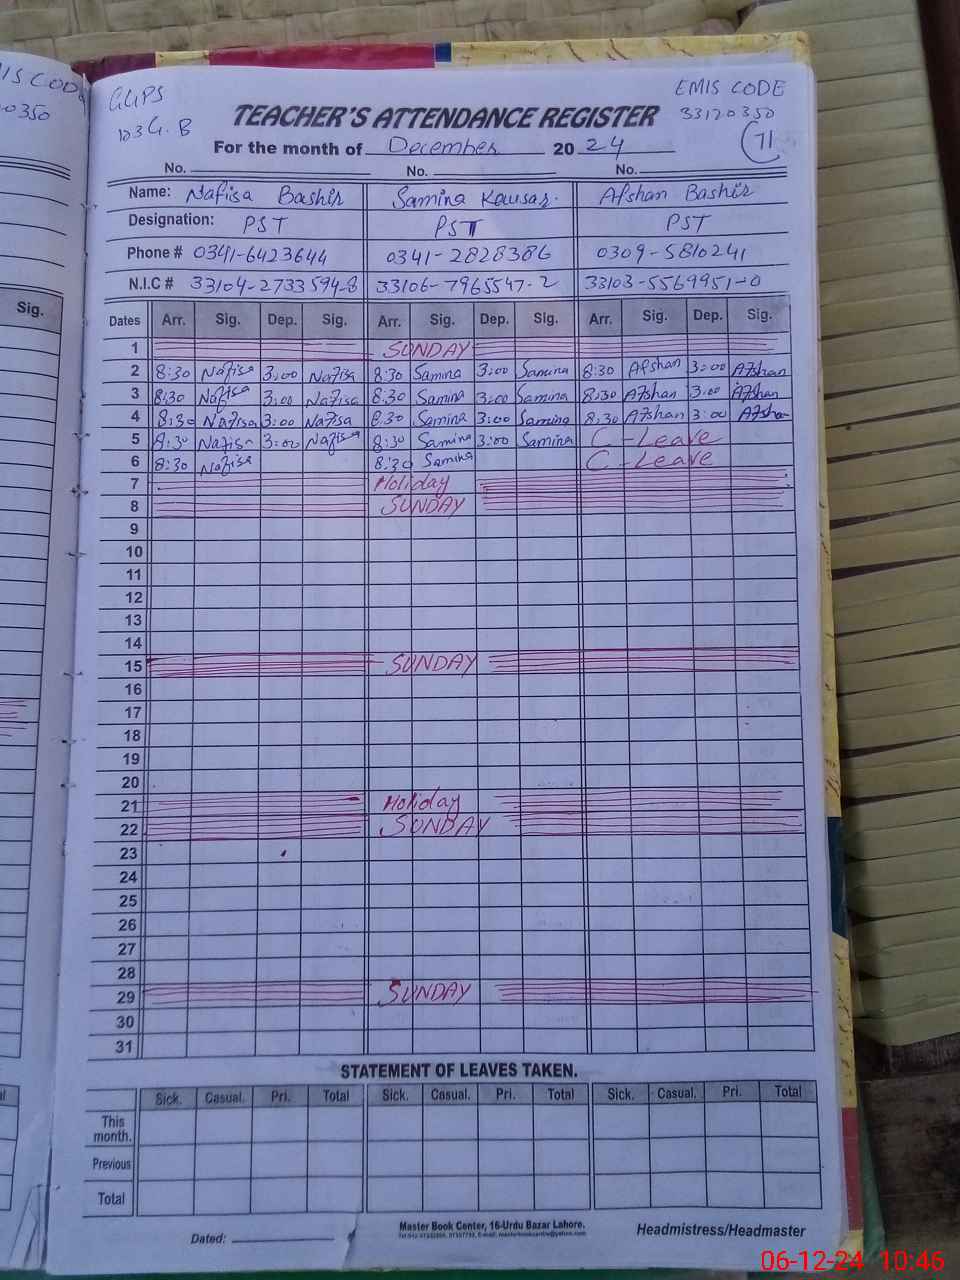 MIS CODE
0350
Sig.
GGPS
103 G.B
EMIS CODE
33120350
71
TEACHER'S ATTENDANCE REGISTER
For the month of December 2024
No. No. No.
Name: Nafisa Bashir Samina Kausar. Afshan Bashir
Designation: PST PST PST
Phone # 0341-6423644 0341-2828386 0309-5810241
N.I.C # 33104-2733594-8 33106-7965547-2 33103-5569951-0
Dates Arr. Sig. Dep. Sig. Arr. Sig. Dep. Sig. Arr. Sig. Dep. Sig.
1 SUNDAY
2 8:30 Nafisa 3:00 Nafisa 8:30 Samina 3:00 Samina 8:30 Afshan 3:00 Afshan
3 8:30 Nafisa 3:00 Nafisa 8:30 Samina 3:00 Samina 8:30 Afshan 3:00 Afshan
4 8:30 Nafisa 3:00 Nafisa 8:30 Samina 3:00 Samina 8:30 Afshan 3:00 Afshan
5 8:30 Nafisa 3:00 Nafisa 8:30 Samina 3:00 Samina C-Leave
6 8:30 Nafisa 8:30 Samina C-Leave
7 Holiday
8 SUNDAY
9
10
11
12
13
14
15 SUNDAY
16
17
18
19
20
21 Holiday
22 SUNDAY
23
24
25
26
27
28
29 SUNDAY
30
31
STATEMENT OF LEAVES TAKEN.
Sick. Casual. Pri. Total Sick. Casual. Pri. Total Sick. Casual. Pri. Total
This month.
Previous
Total
Dated:
Master Book Center, 16-Urdu Bazar Lahore.
Headmistress/Headmaster
06-12-24 10:46